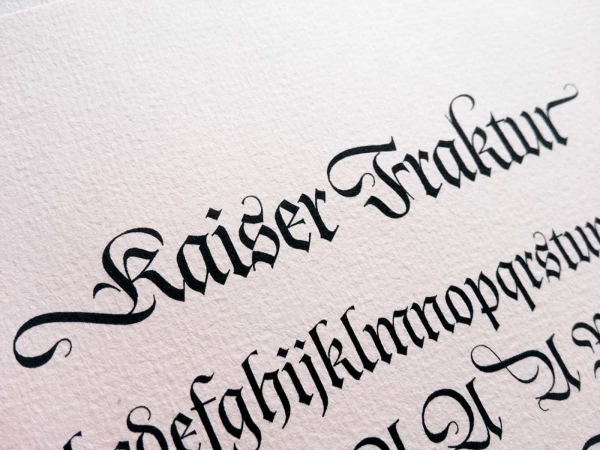 Kaiser Fraktur
defghijklmnopqrstuv
A A A